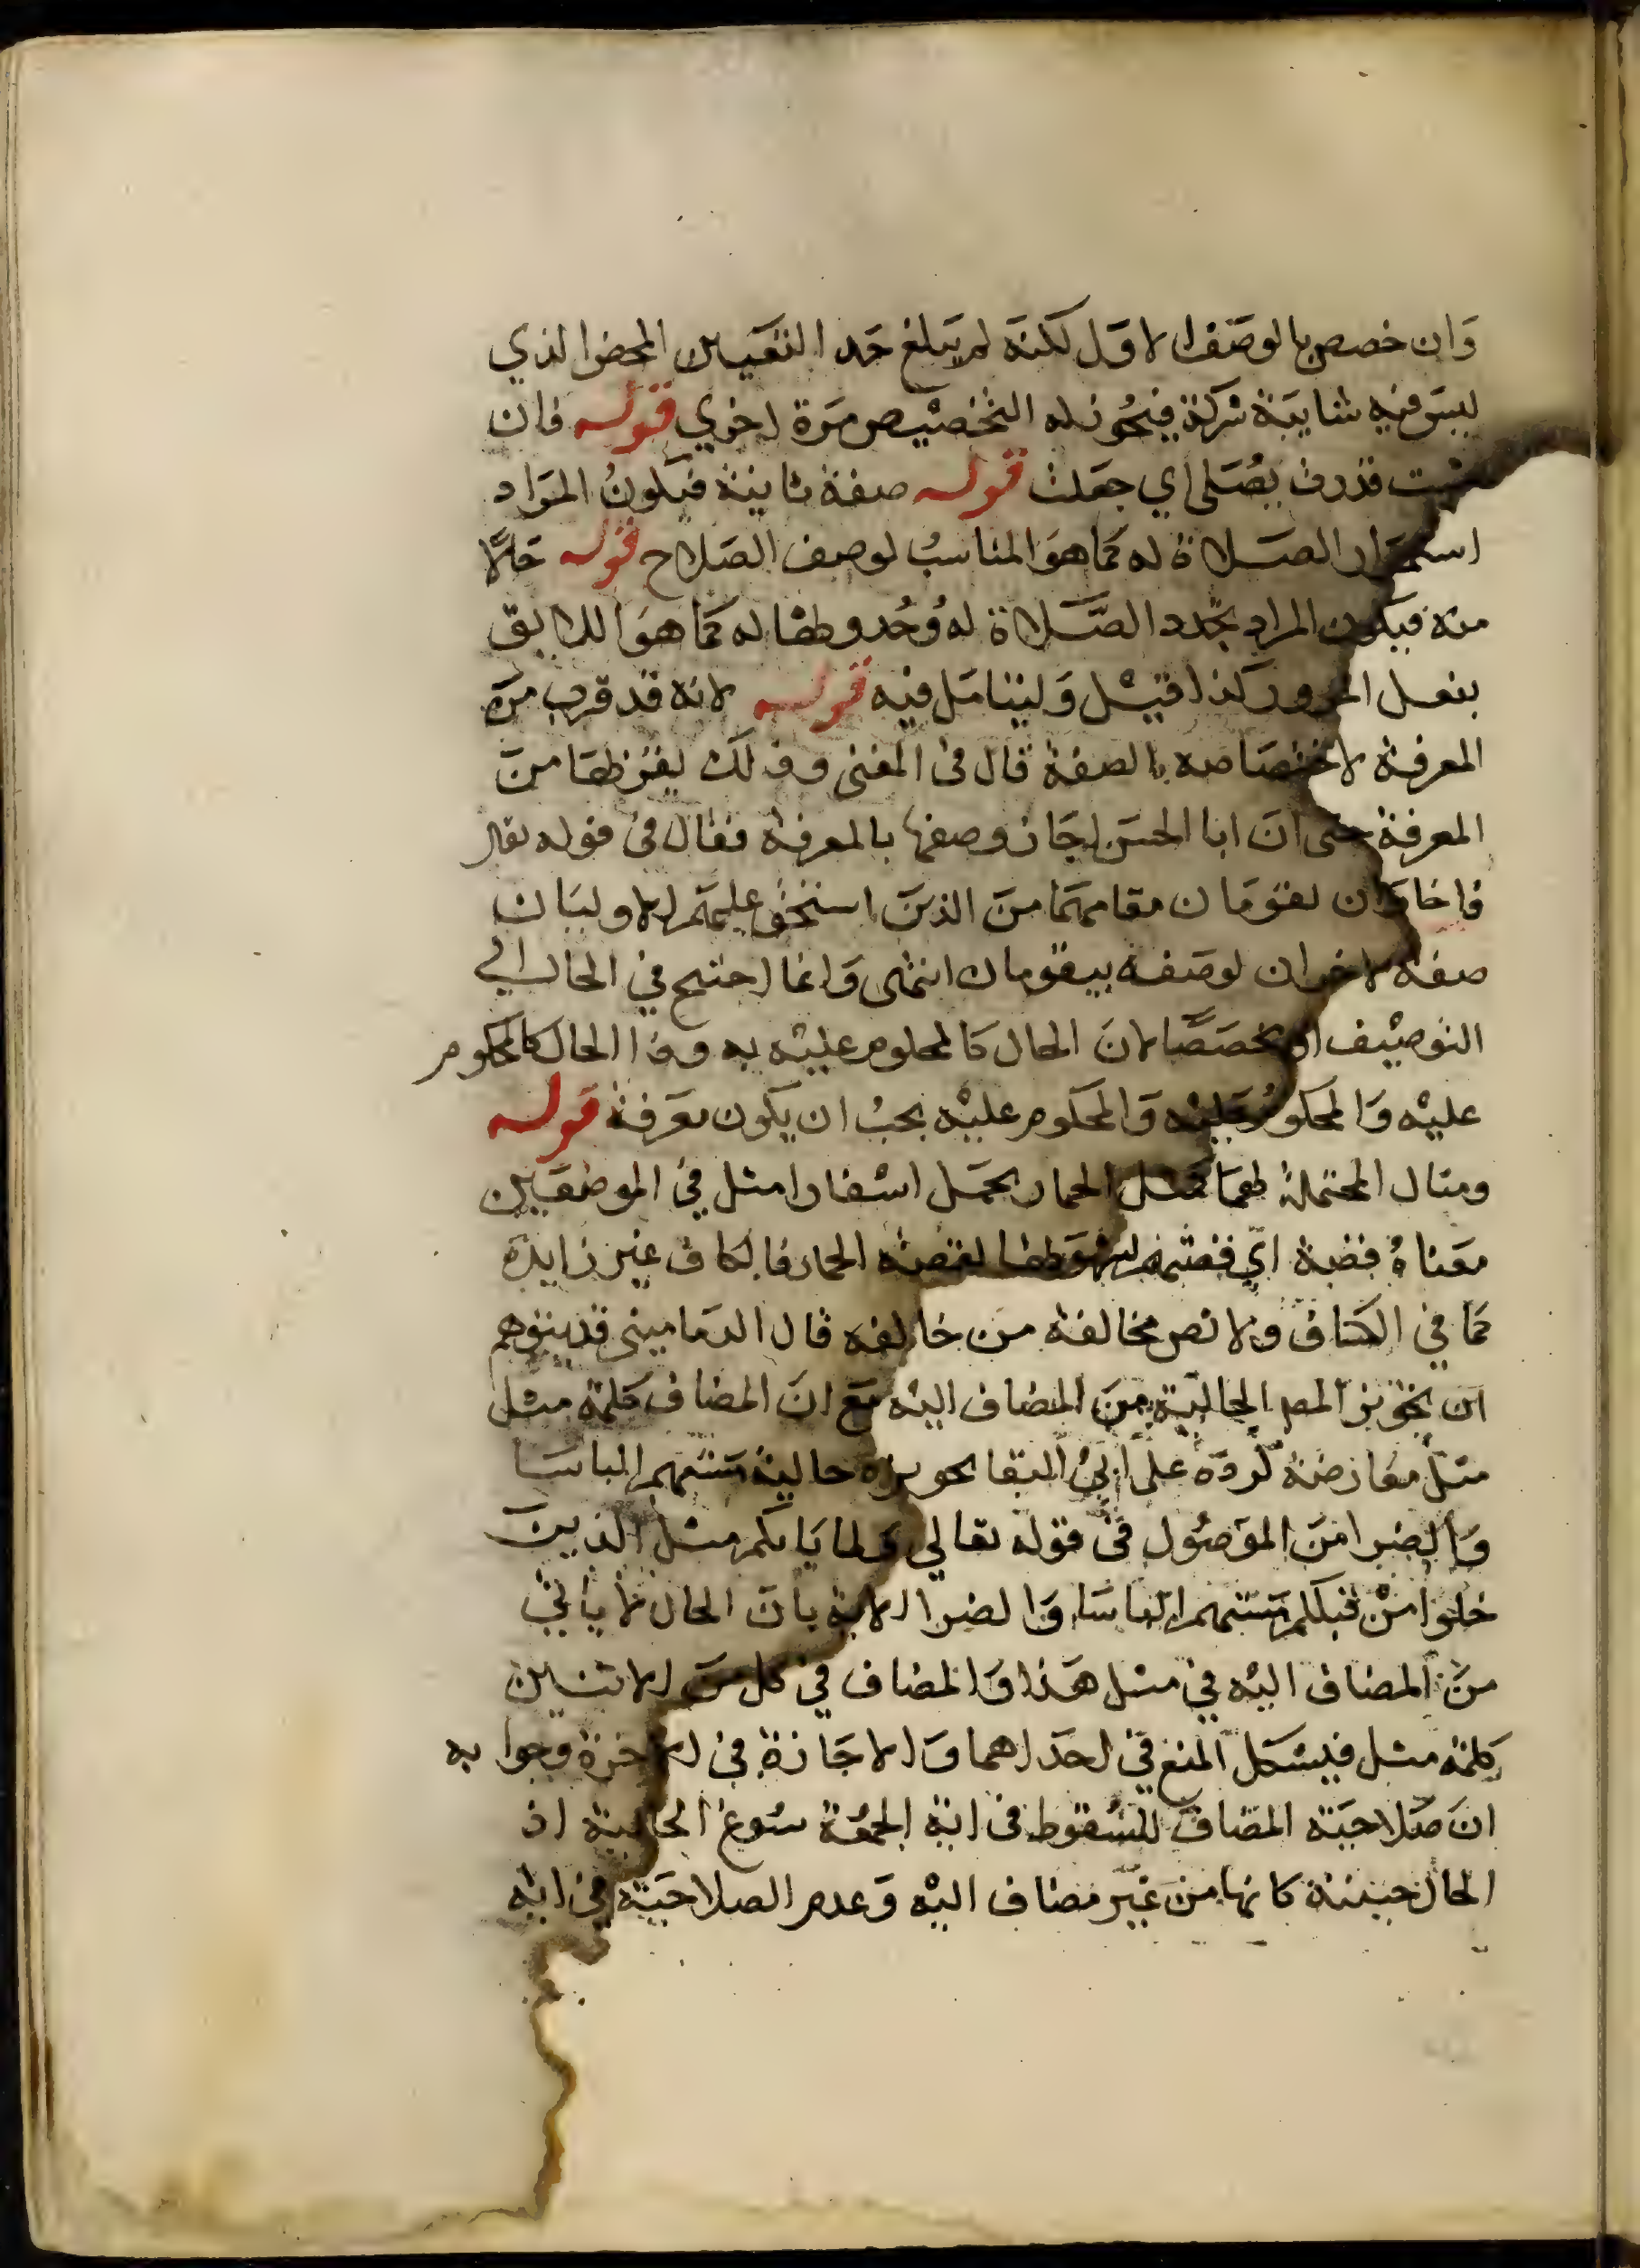 وان خصص بالوصف الاول لكنه لم يبلغ حد التعيين المحض الذي
ليس فيه شايبة شركة فيجوز له التخصيص مرة اخري قوله فان
قدرت يصلي اي جعلت قوله صفة ثانية فيكون المراد
استمرار الصلاة له كما هو المناسب لوصف الصلاح قوله حالا
منه فيكون المراد تجدد الصلاة له وحدوثها له كما هو اللايق
بفعل المرور كذا قيل وليتامل فيه قوله لانه قد قرب من
المعرفة لاختصاصه بالصفة قال في المغني وذلك يقربها من
المعرفة حتى ان ابا الحسن اجاز وصفها بالمعرفة فقال في قوله تعالى
فاخران يقومان مقامهما من الذين استحق عليهم الاوليان
صفة لاخران لوصفه بيقومان انتهى وانما احتيج في الحال الي
التوصيف مخصصا لان الحال كالمحكوم عليه به وذا الحال كالمحكوم
عليه والمحكوم عليه والمحكوم عليه يجب ان يكون معرفة قوله
ومثال المحتملة لهما كمثل الحمار يحمل اسفارا مثل في الموضعين
معناه قصة اي فقصتهم لقصة الحمار فالكاف غير زايدة
كما في الكشاف ولا نص مخالفة من خالفه قال الدماميني قد يتوهم
ان تجويز المصـ الحالية من المضاف اليه مع ان المضاف كلمة مثل
مثل معارضة لرده على ابي البقا تجويزه حالية مستهم الباسا
والضرا من الموصول في قوله تعالي ولما ياتكم مثل الذين
خلوا من قبلكم مستهم الباسا والضرا الاية بان الحال لا ياتي
من المضاف اليه في مثل هذا والمضاف في كل من الايتين
كلمة مثل فيشكل المنع في احداهما والاجازة في الاخرة وجوابه
ان صلاحية المضاف للسقوط في اية الجمعة سوغ الحالية اذ
الحال حينئذ كانها من غير مضاف اليه وعدم الصلاحية في اية